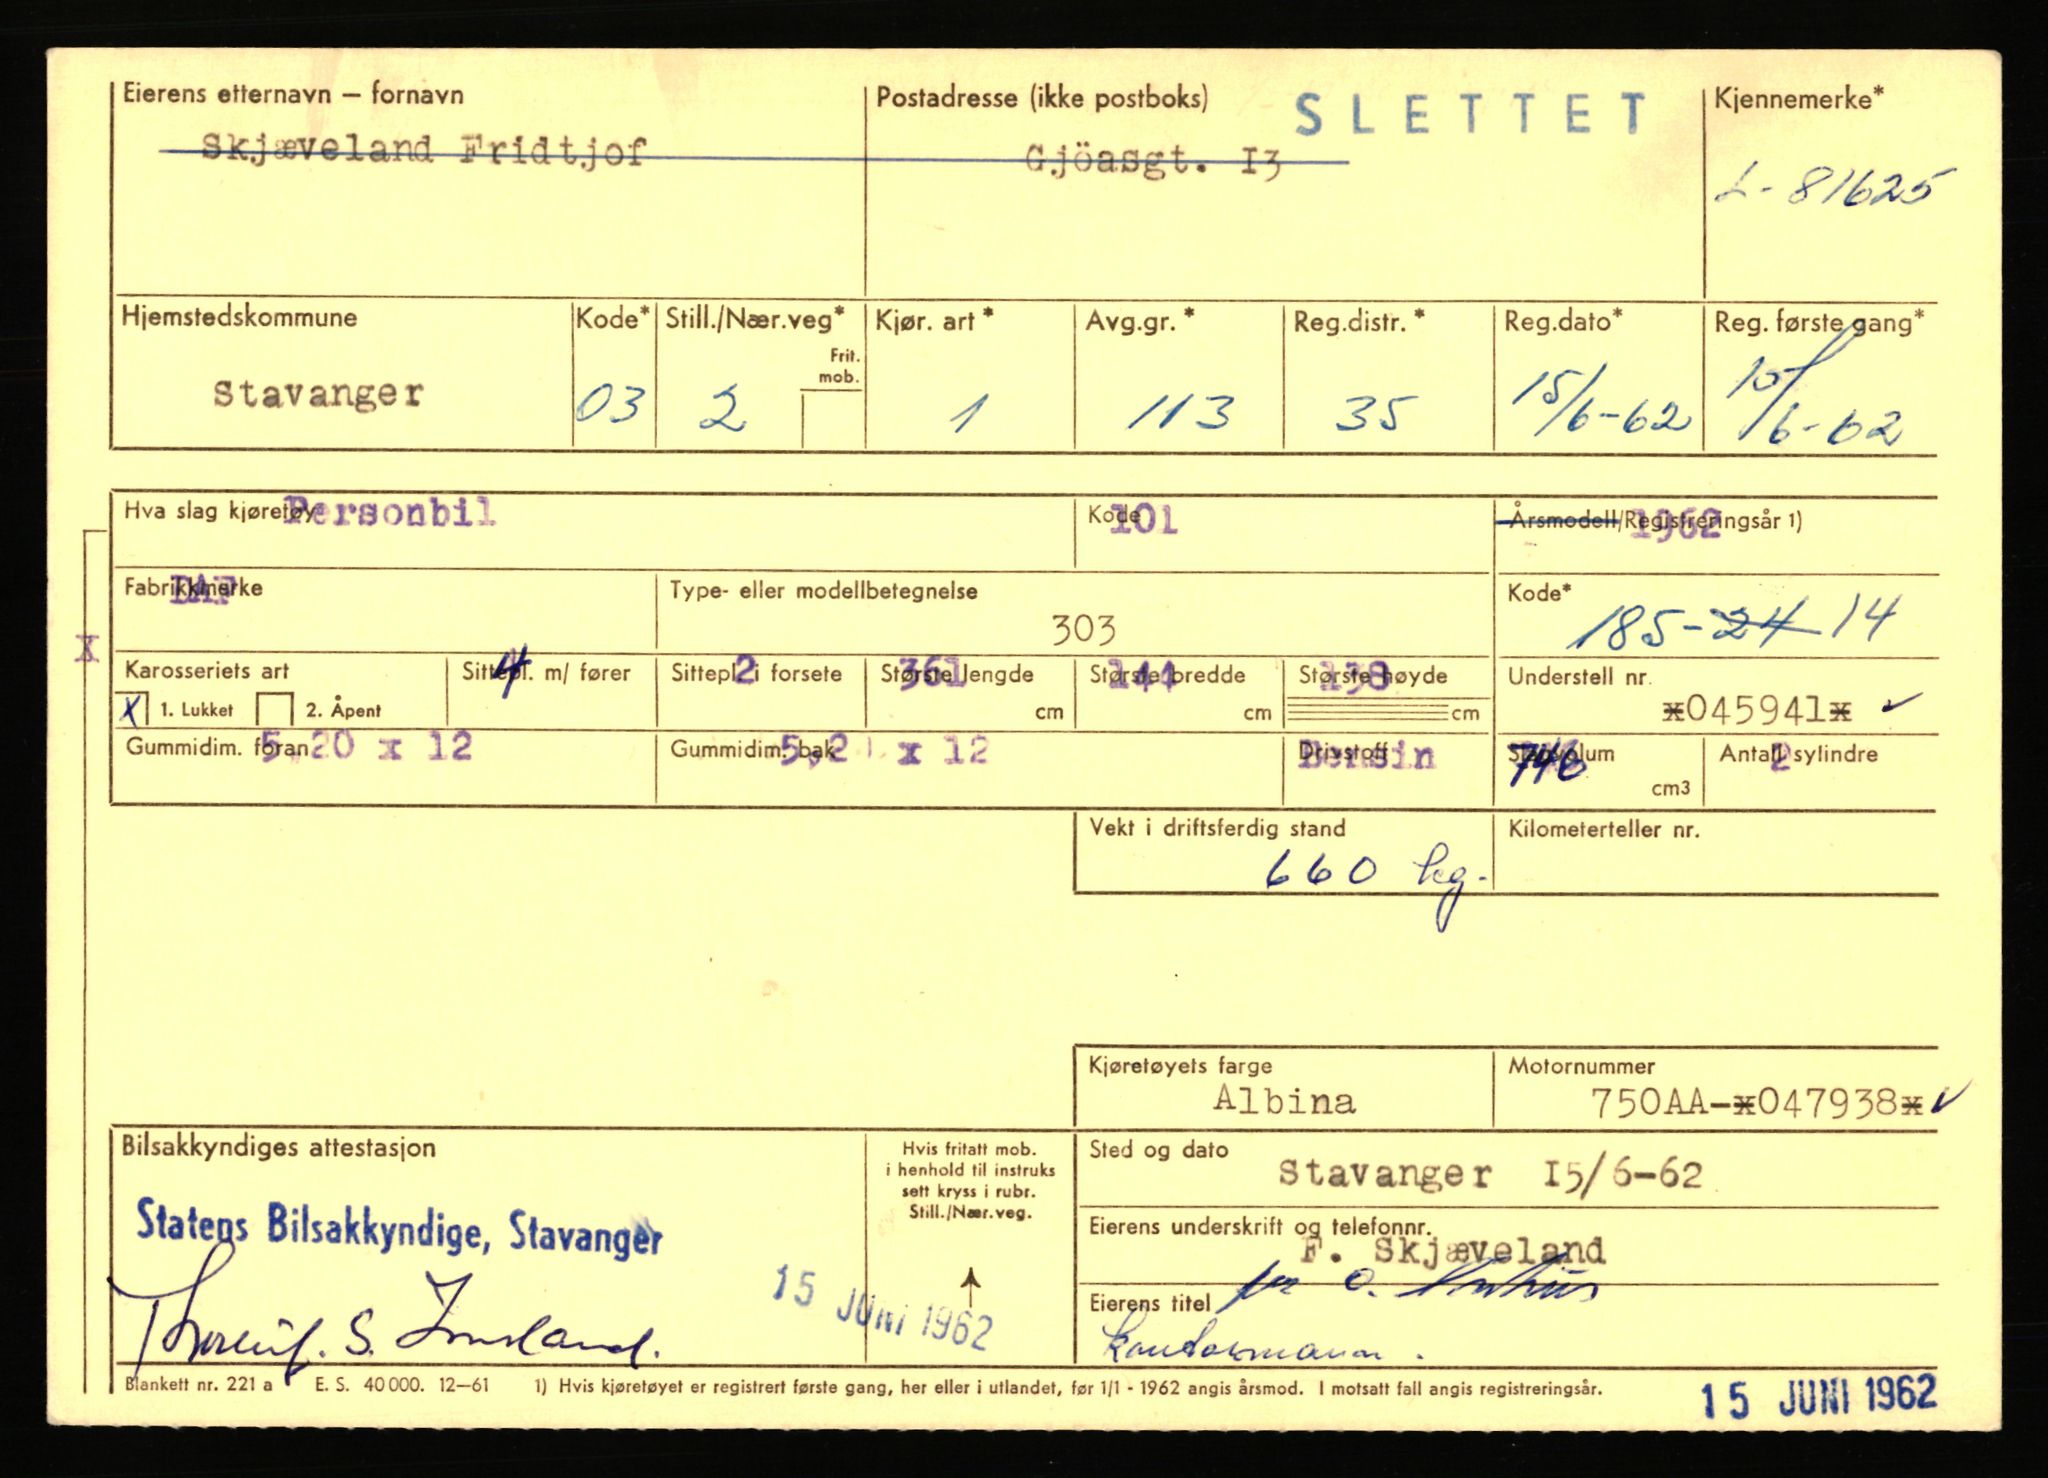 Eierens etternavn – fornavn
Skjæveland Fridtjof
Postadresse (ikke postboks)
Gjöasgt. I3
SLETTET
Kjennemerke*
L-81625
Hjemstedskommune
Stavanger
Kode*
03
Still./Nær.veg*
2
Frit.
mob.
Kjør. art *
1
Avg.gr. *
113
Reg.distr. *
35
Reg.dato*
15/6-62
Reg. første gang*
15/6-62
Hva slag kjøretøy
Personbil
Kode
101
Årsmodell/Registreringsår 1)
1962
Fabrikkmerke
DAF
Type- eller modellbetegnelse
303
Kode*
185-24 14
X
Karosseriets art
X 1. Lukket 2. Åpent
Sittepl. m/ fører
4
Sittepl. i forsete
2
Største lengde
361
cm
Største bredde
144
cm
Største høyde
138
cm
Understell nr.
*045941*
Gummidim. foran
5,20 x 12
Gummidim. bak
5,20 x 12
Drivstoff
Bensin
Slagvolum
746
cm3
Antall sylindre
2
Vekt i driftsferdig stand
660 kg.
Kilometerteller nr.
Kjøretøyets farge
Albina
Motornummer
750AA-*047938*
Bilsakkyndiges attestasjon
Statens Bilsakkyndige, Stavanger
S.
15 JUNI 1962
Hvis fritatt mob.
i henhold til instruks
sett kryss i rubr.
Still./Nær.veg.
Sted og dato
Stavanger I5/6-62
Eierens underskrift og telefonnr.
F. Skjæveland
Eierens titel
Kontormann.
Blankett nr. 221 a E. S. 40 000. 12–61 1) Hvis kjøretøyet er registrert første gang, her eller i utlandet, før 1/1 - 1962 angis årsmod. I motsatt fall angis registreringsår.
15 JUNI 1962